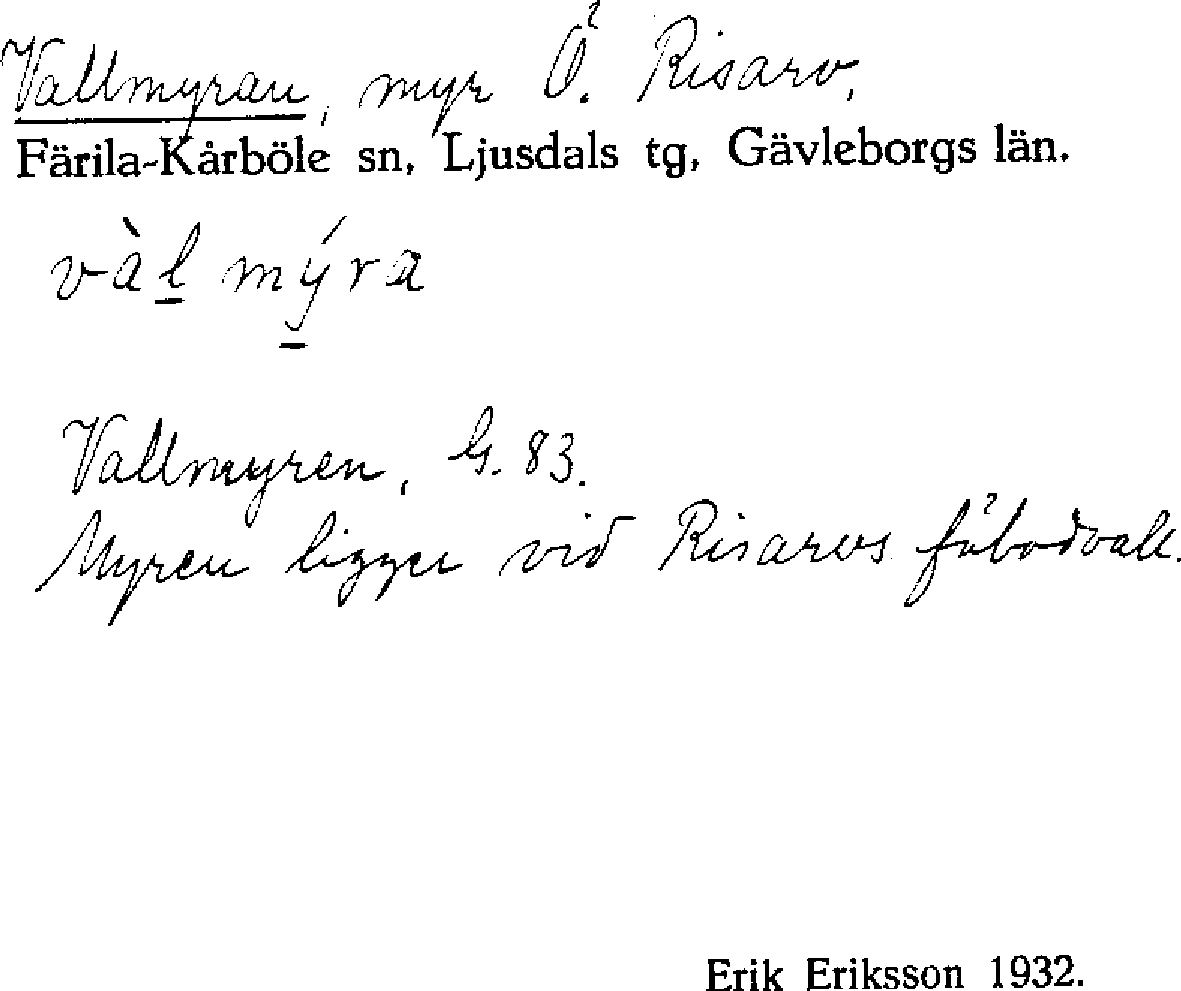 Vallmyran, myr Ö. Risarv,
Färila-Kårböle sn, Ljusdals tg, Gävleborgs län.
vàl mýra
Vallmyren, G. 83.
Myren ligger vid Risarvs fäbodvall.
Erik Eriksson 1932.